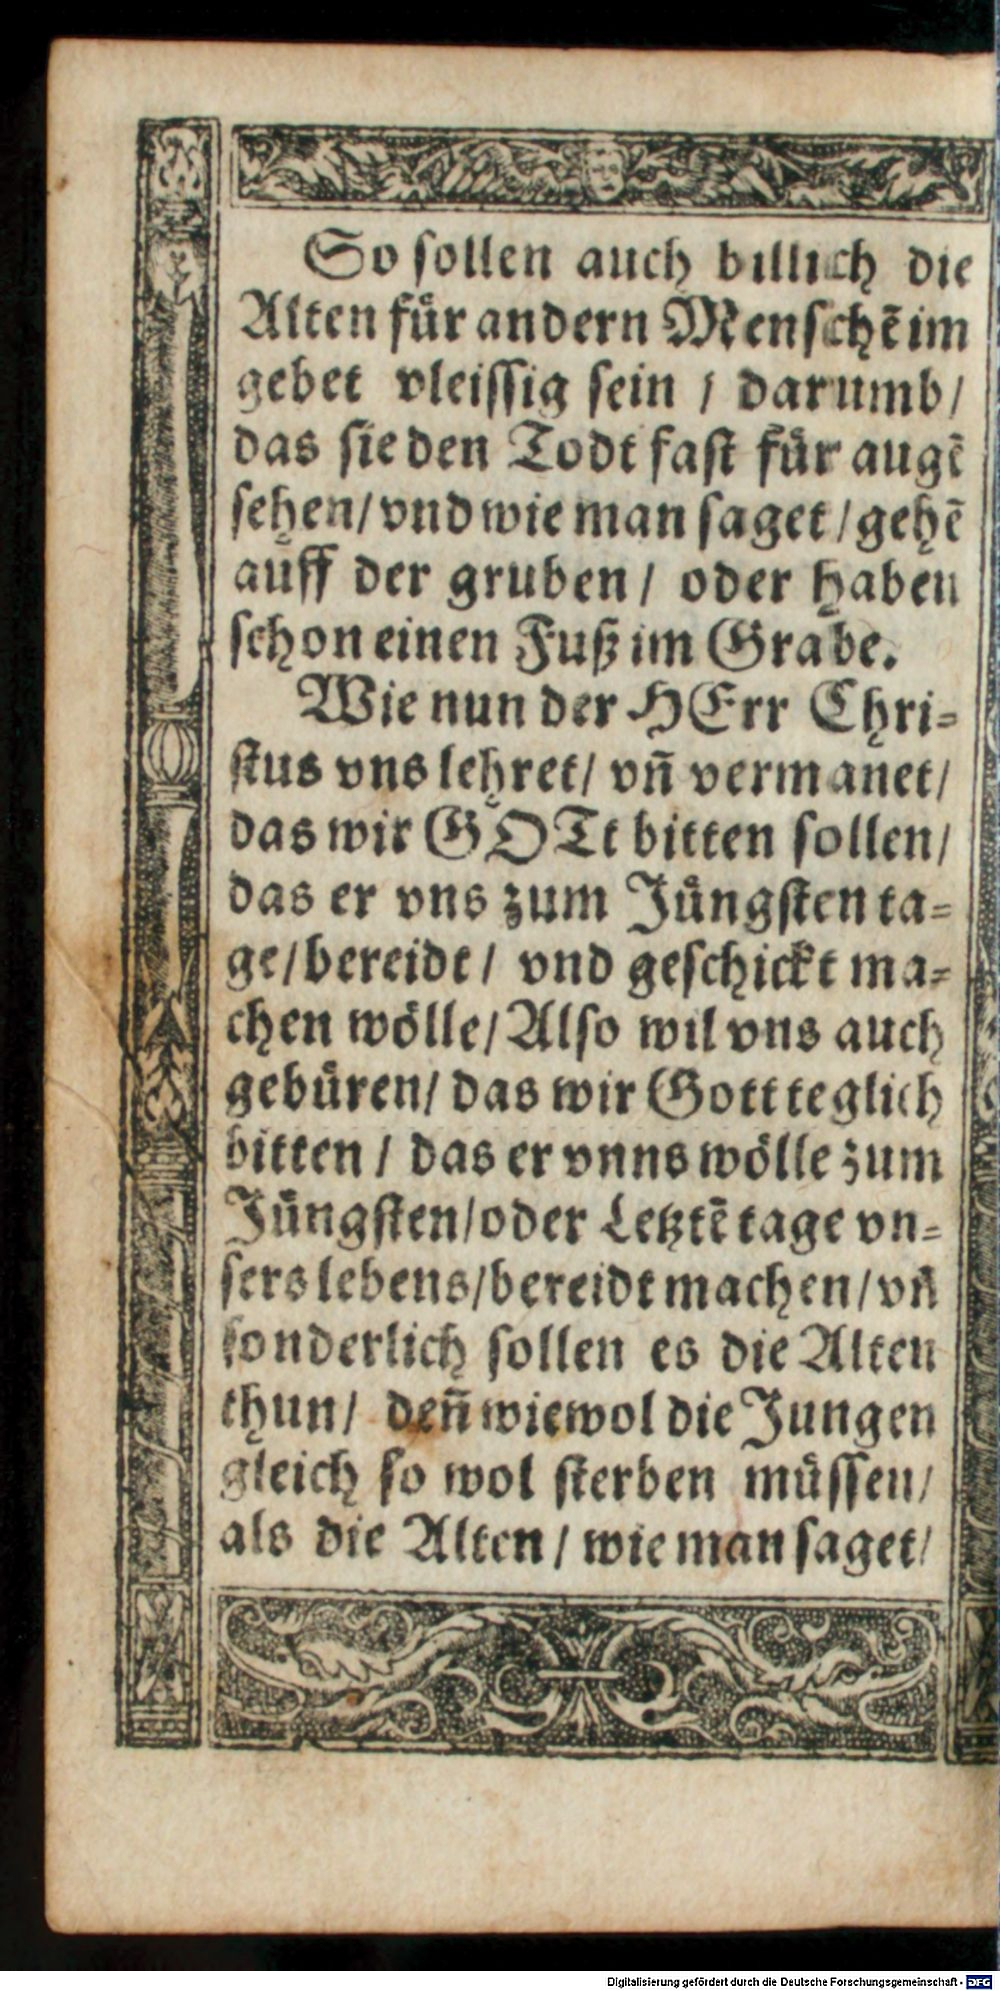 So ſollen auch billich die
Alten fuͤr andern Menſchẽ im
gebet vleiſſig ſein / darumb /
das ſie den Todt faſt fuͤr augẽ
ſehen / vnd wie man ſaget / gehẽ
auff der gruben / oder haben
ſchon einen Fuß im Grabe.
Wie nun der HErr Chri⸗
ſtus vns lehret / vñ vermanet /
das wir GOTt bitten ſollen /
das er vns zum Juͤngſten ta⸗
ge / bereidt / vnd geſchickt ma⸗
chen woͤlle / Alſo wil vns auch
gebuͤren / das wir Gott teglich
bitten / das er vnns woͤlle zum
Juͤngſten / oder Letztẽ tage vn⸗
ſers lebens / bereidt machen / vñ
ſonderlich ſollen es die Alten
thun / deñ wiewol die Jungen
gleich ſo wol ſterben muͤſſen /
als die Alten / wie man ſaget /
Digitalisierung gefördert durch die Deutsche Forschungsgemeinschaft - DFG